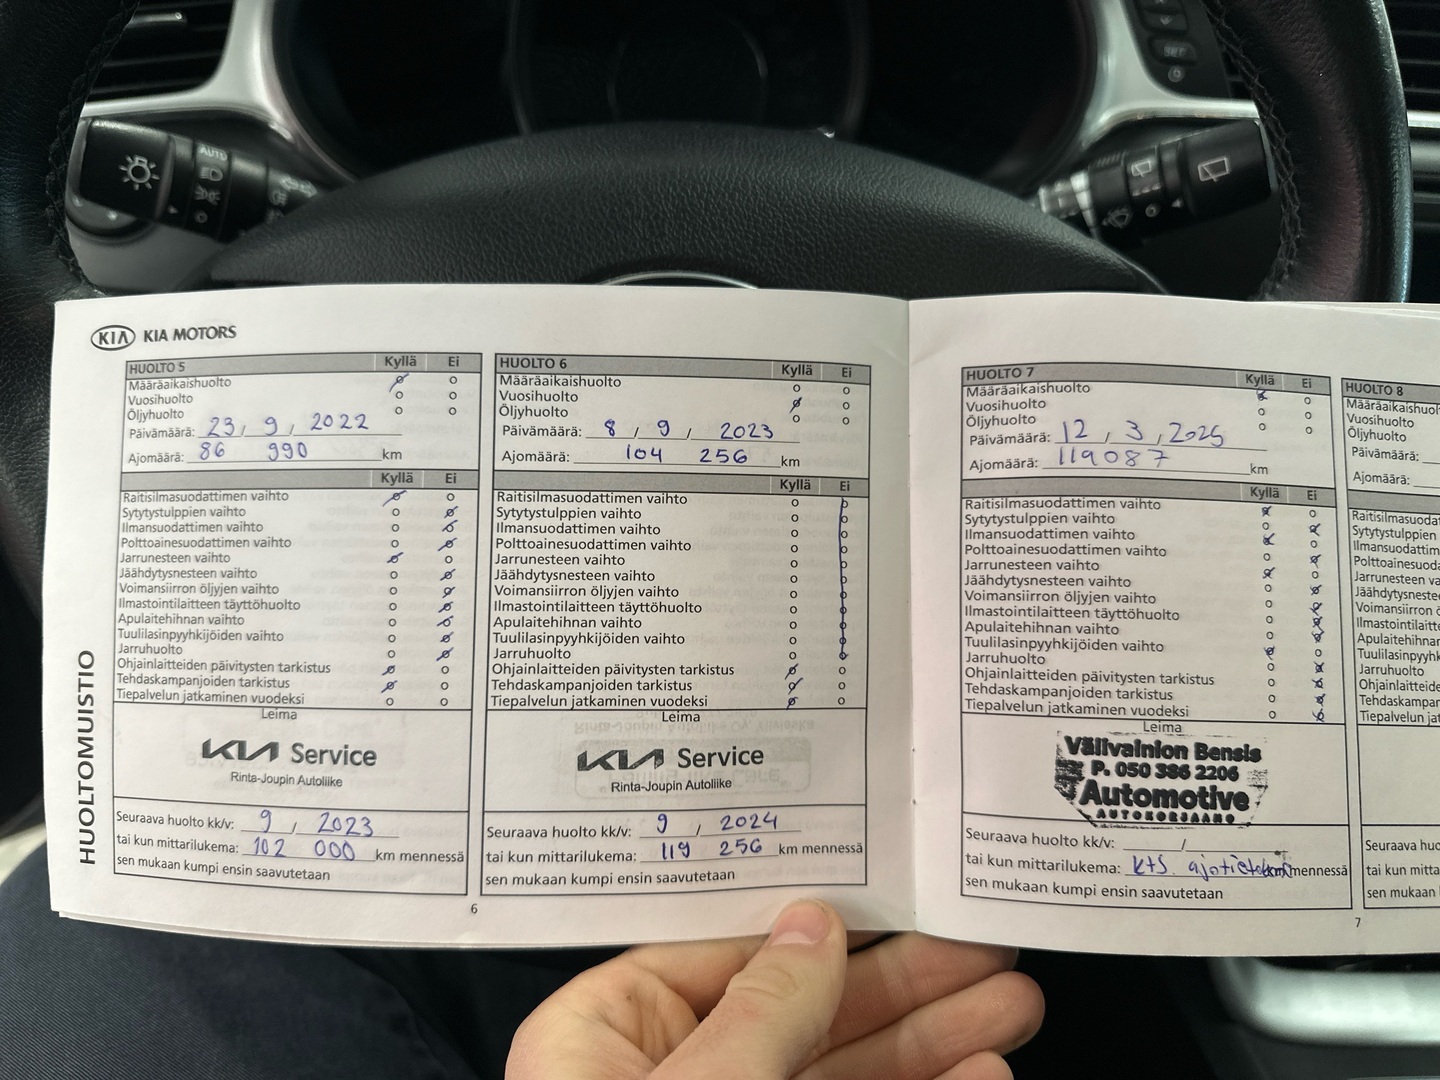 AUTO
KIA KIA MOTORS
HUOLTOMUISTIO
HUOLTO 5 Kyllä Ei
Määräaikaishuolto
Vuosihuolto
Öljyhuolto
Päivämäärä: 23 / 9 / 2022
Ajomäärä: 86 990 km
Kyllä Ei
Raitisilmasuodattimen vaihto
Sytytystulppien vaihto
Ilmansuodattimen vaihto
Polttoainesuodattimen vaihto
Jarrunesteen vaihto
Jäähdytysnesteen vaihto
Voimansiirron öljyjen vaihto
Ilmastointilaitteen täyttöhuolto
Apulaitehihnan vaihto
Tuulilasinpyyhkijöiden vaihto
Jarruhuolto
Ohjainlaitteiden päivitysten tarkistus
Tehdaskampanjoiden tarkistus
Tiepalvelun jatkaminen vuodeksi
Leima
KIA Service
Rinta-Joupin Autoliike
Seuraava huolto kk/v: 9 / 2023
tai kun mittarilukema: 102 000 km mennessä
sen mukaan kumpi ensin saavutetaan
HUOLTO 6 Kyllä Ei
Määräaikaishuolto
Vuosihuolto
Öljyhuolto
Päivämäärä: 8 / 9 / 2023
Ajomäärä: 104 256 km
Kyllä Ei
Raitisilmasuodattimen vaihto
Sytytystulppien vaihto
Ilmansuodattimen vaihto
Polttoainesuodattimen vaihto
Jarrunesteen vaihto
Jäähdytysnesteen vaihto
Voimansiirron öljyjen vaihto
Ilmastointilaitteen täyttöhuolto
Apulaitehihnan vaihto
Tuulilasinpyyhkijöiden vaihto
Jarruhuolto
Ohjainlaitteiden päivitysten tarkistus
Tehdaskampanjoiden tarkistus
Tiepalvelun jatkaminen vuodeksi
Leima
KIA Service
Rinta-Joupin Autoliike
Seuraava huolto kk/v: 9 / 2024
tai kun mittarilukema: 119 256 km mennessä
sen mukaan kumpi ensin saavutetaan
6
HUOLTO 7 Kyllä Ei
Määräaikaishuolto
Vuosihuolto
Öljyhuolto
Päivämäärä: 12 / 3 / 2025
Ajomäärä: 119087 km
Kyllä Ei
Raitisilmasuodattimen vaihto
Sytytystulppien vaihto
Ilmansuodattimen vaihto
Polttoainesuodattimen vaihto
Jarrunesteen vaihto
Jäähdytysnesteen vaihto
Voimansiirron öljyjen vaihto
Ilmastointilaitteen täyttöhuolto
Apulaitehihnan vaihto
Tuulilasinpyyhkijöiden vaihto
Jarruhuolto
Ohjainlaitteiden päivitysten tarkistus
Tehdaskampanjoiden tarkistus
Tiepalvelun jatkaminen vuodeksi
Leima
Välivainion Bensis
P. 050 386 2206
Automotive
AUTOKORJAAMO
Seuraava huolto kk/v: /
tai kun mittarilukema: kts. km mennessä
sen mukaan kumpi ensin saavutetaan
7
HUOLTO 8
Määräaikaishuol
Vuosihuolto
Öljyhuolto
Päivämäärä:
Ajomäärä:
Raitisilmasuoda
Sytytystulppien
Ilmansuodattim
Polttoainesuod
Jarrunesteen v
Jäähdytysneste
Voimansiirron ö
Ilmastointilaitt
Apulaitehihnan
Tuulilasinpyyhk
Jarruhuolto
Ohjainlaitteide
Tehdaskampanj
Tiepalvelun jat
Seuraava huo
tai kun mitta
sen mukaan